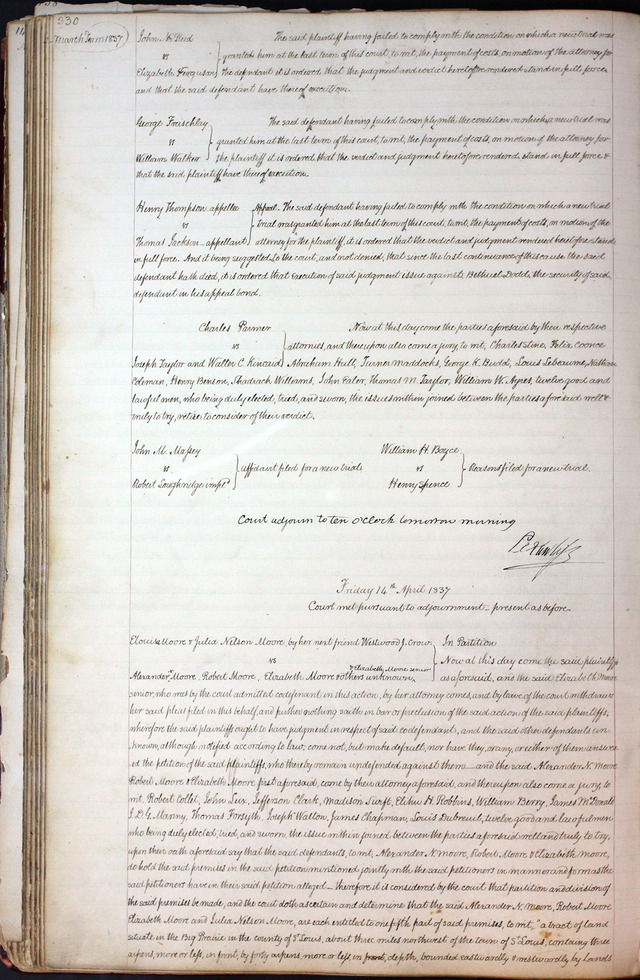 330
March Term 1837
John N. Reed The said plaintiff having failed to comply with the condition on which a new trial was
vs granted him at the last term of this court, to wit, the payment of costs, on motion of the attorney for
Elizabeth Ferguson the defendant it is ordered that the judgment and verdict heretofore rendered stand in full force
and that the said defendant have thereof execution.
George Freschley The said defendant having failed to comply with the condition on which a new trial was
vs granted him at the last term of this court, to wit, the payment of costs, on motion of the attorney for
William Walker the plaintiff it is ordered that the verdict and judgment heretofore rendered, stand in full force &
that the said plaintiff have thereof execution.
Henry Thompson appellee Appeal. The said defendant having failed to comply with the condition on which a new trial
vs trial was granted him at the last term of this court, to wit, the payment of costs, on motion of the
Thomas Jackson appellant attorney for the plaintiff, it is ordered that the verdict and judgment rendered heretofore stand
in full force. And it being suggested to the court, and not denied, that since the last continuance of this cause the said
defendant hath died, it is ordered that execution of said judgment issue against Bethuel Dodd, the security of said
defendant in his appeal bond.
Charles Parmer Now at this day come the parties aforesaid by their respective
vs attornies, and thereupon also come a jury, to wit, Charles Line, Felix Coonce
Joseph Taylor and Walter C. Kincaid Abraham Hull, Turner Maddocks, George K. Budd, Louis Lebeaume, Nathan
Coleman, Henry Benson, Shadrach Williams, John Ealer, Thomas M. Taylor, William W. Ayres, twelve good and
lawful men, who being duly elected, tried, and sworn, the issues within joined between the parties aforesaid well &
truly to try, retire to consider of their verdict.
John M. Massey William H. Boyce
vs affidavit filed for a new trial vs Reasons filed for a new trial.
Robert Loughridge Henry Spence
Court adjourn to ten o'Clock tomorrow morning
Friday 14th April 1837
Court met pursuant to adjournment - present as before.
Elouisa Moore & Julia Nelson Moore by her next friend Westwood J. Crow In Partition
vs Now at this day come the said plaintiffs
& Elizabeth Moore senior
Alexander N. Moore, Robert Moore, Elizabeth Moore & others unknown as aforesaid, and the said Elizabeth Moore
senior, who was by the court admitted codefendant in this action, by her attorney comes, and by leave of the court withdraws
her said plea filed in this behalf, and further nothing saith in bar or preclusion of the said action of the said plaintiffs,
wherefore the said plaintiffs ought to have judgment in respect of said codefendant, and the said other defendants un-
known, although notified according to law, come not, but make default, nor have they, or any, or either of them answer
ed the petition of the said plaintiffs, who thereby remain undefended against them - and the said Alexander N. Moore
Robert Moore & Elizabeth Moore first aforesaid, come by their attorney aforesaid, and thereupon also come a jury, to
wit, Robert Collet, John Lux, Jefferson Clark, Madison Swift, Elihu H. Robbins, William Berry, James McDonall
J. D. G. Manny, Thomas Forsyth, Joseph Walton, James Chapman, Louis Dubreuil, twelve good and lawful men
who being duly elected, tried, and sworn, the issue within joined between the parties aforesaid well and truly to try,
upon their oath aforesaid say that the said defendants, to wit, Alexander N. Moore, Robert Moore & Elizabeth Moore,
do hold the said premises in the said petition mentioned jointly with the said petitioners in manner and form as the
said petitioners have in their said petition alleged - therefore it is considered by the court that partition and division of
the said premises be made, and the court doth ascertain and determine that the said Alexander N. Moore, Robert Moore
Elizabeth Moore and Julia Nelson Moore, are each entitled to one fifth part of said premises, to wit, "a tract of land
situate in the Big Prairie in the county of St Louis, about three miles northwest of the town of St Louis, containg three
arpens, more or less, in front, by forty arpens, more or less in front, depth, bounded eastwardly & westwardly by Lands